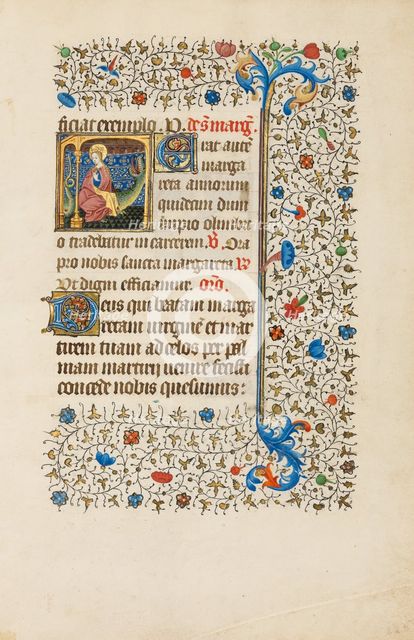 ficiat exemplo. P. De s. marg.
Erat aute
marga
reta annorum
quindecim dum
ab impio olimbri
o tradebatur in carcerem. V Ora
pro nobis sancta margareta R
Ut digni efficiamur. oro.
Deus qui beatam marga
retam virginem et mar
tirem tuam ad celos per pal
mam martirii venire fecisti
concede nobis quesumus: